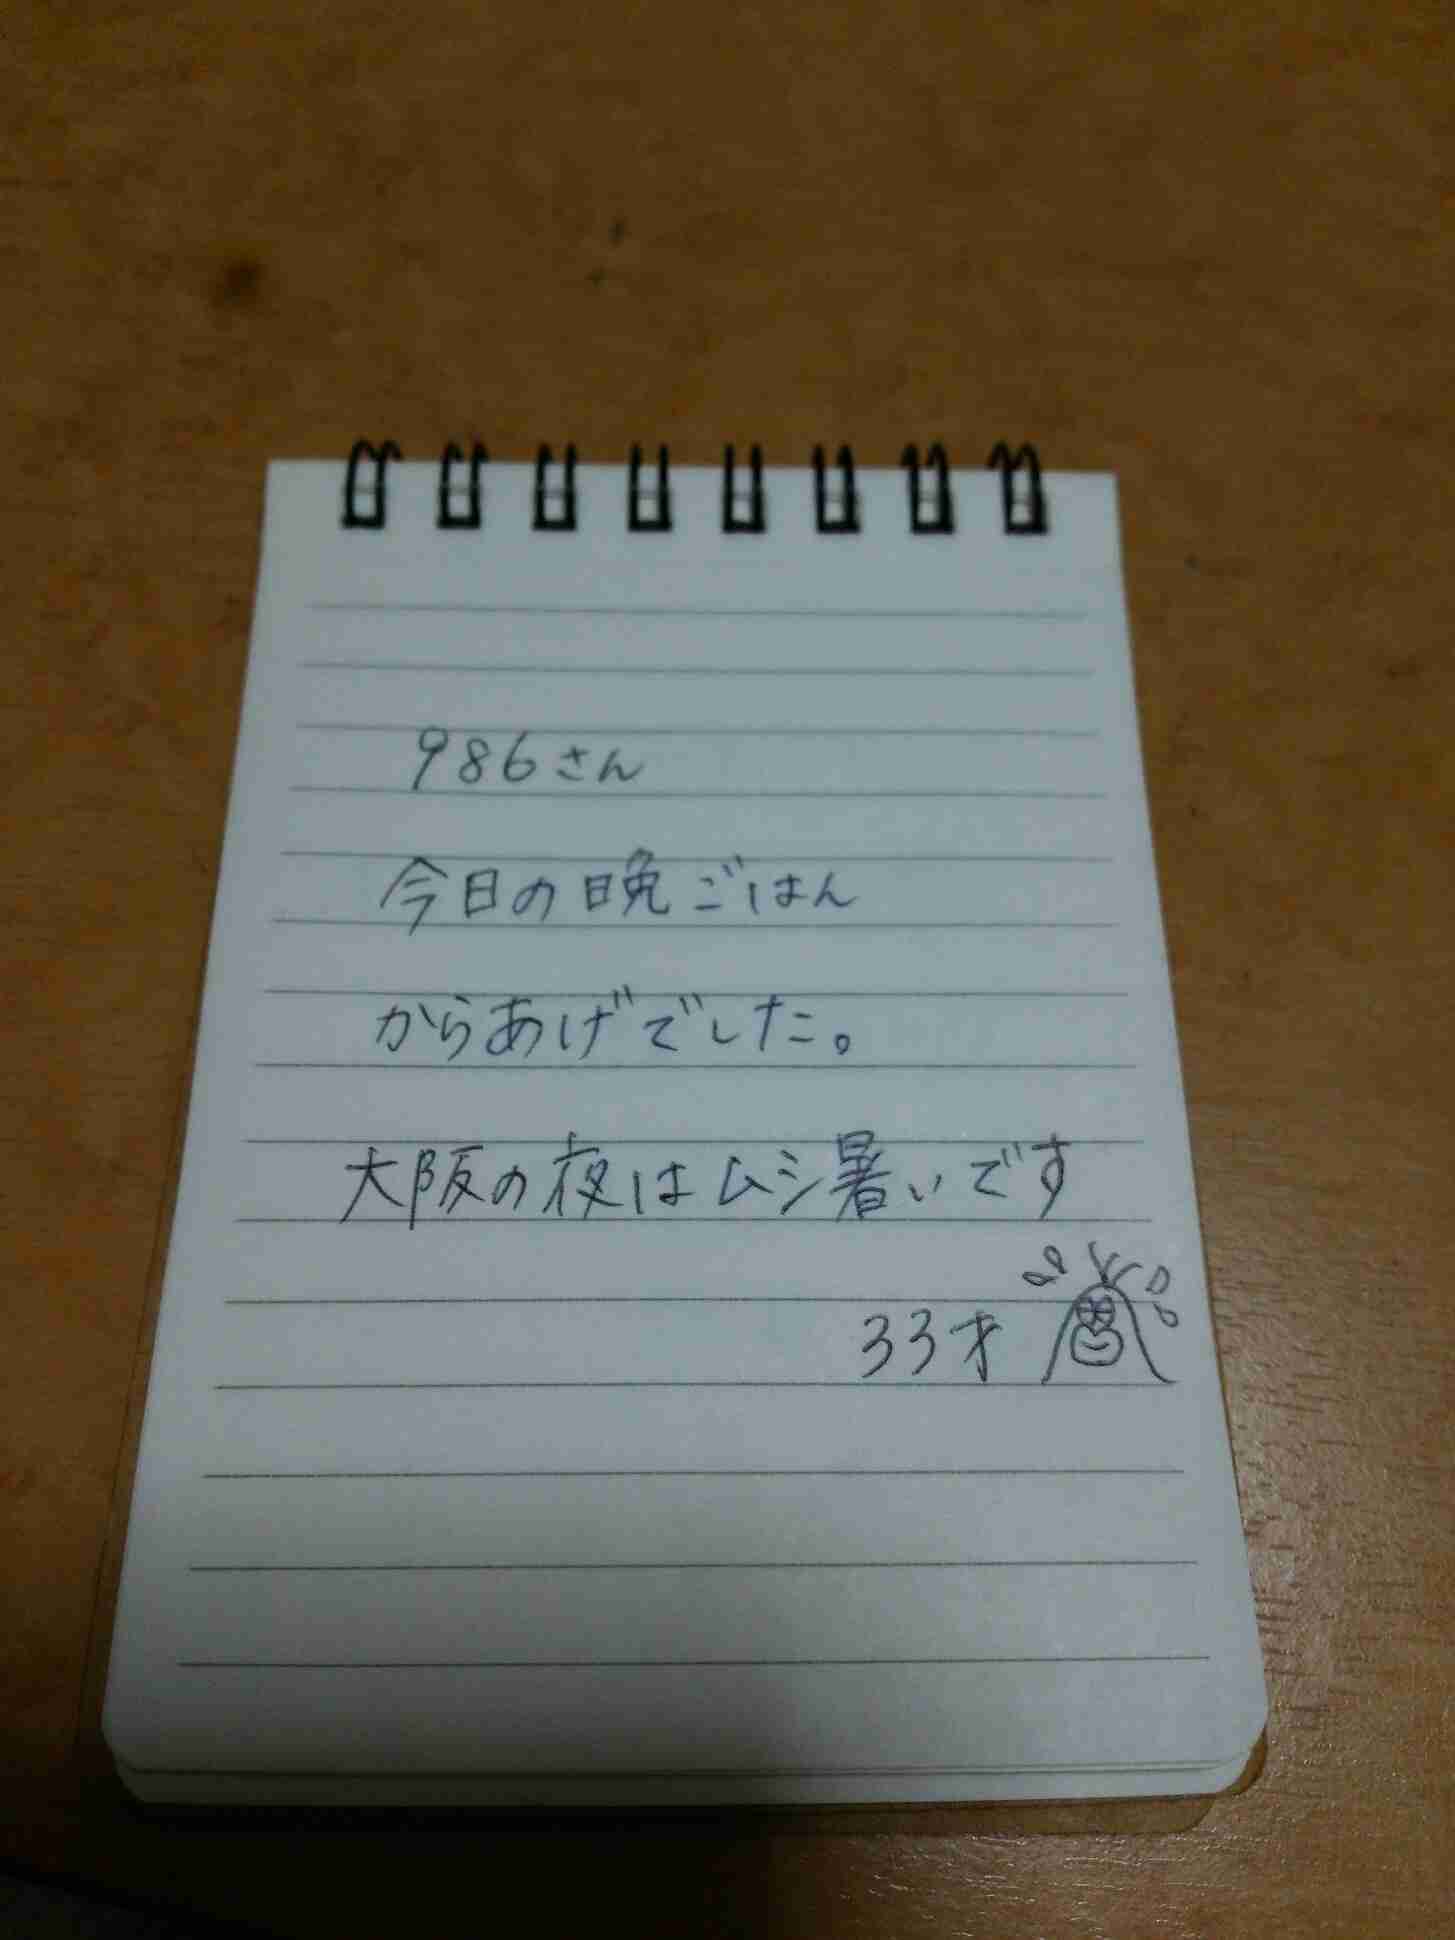 986さん
今日の晩ごはん
からあげでした。
大阪の夜はムシ暑いです
33才